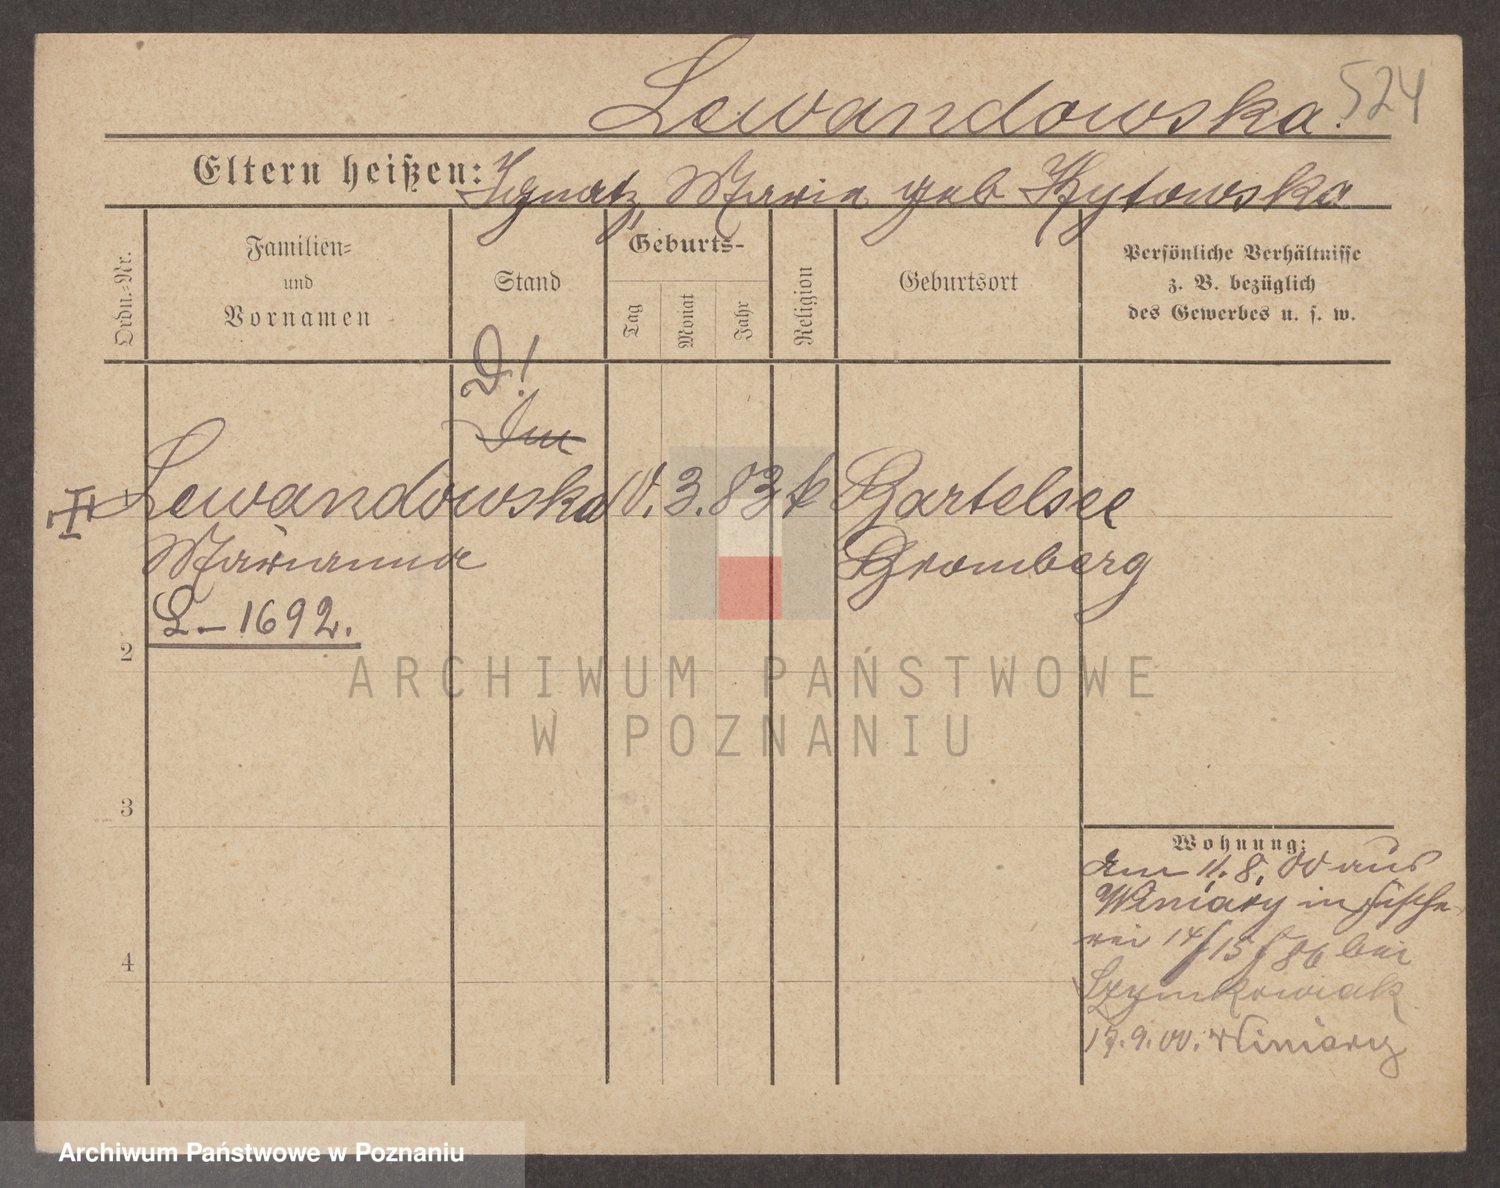 Lewandowska. 524
Eltern heißen: Ignatz, Marie geb Kytowska
Ordn.-Nr.
Familien-
und
Vornamen
Stand
Geburts-
Tag
Monat
Jahr
Religion
Geburtsort
Persönliche Verhältnisse
z. B. bezüglich
des Gewerbes u. s. w.
D!
Lewandowska 10. 3. 83 k Bartelsee
Marianna Bromberg
L – 1692.
2
3
4
Wohnung:
Am 11. 8. 00 aus
Winiary in Fische-
rei 14/15/ 86 bei
Szymkowiak
17. 9. 00. Winiary
ARCHIWUM PAŃSTWOWE
W POZNANIU
Archiwum Państwowe w Poznaniu